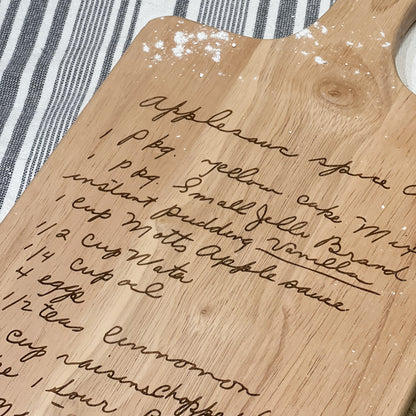 Applesauce spice
1 pkg. yellow cake Mix
1 pkg. Small Jello Brand
instant pudding Vanilla
1 cup Motts Applesauce
1/2 cup Wata
1/4 cup oil
4 eggs
1/2 teas cinnamon
cup raisins chopped
1 sour